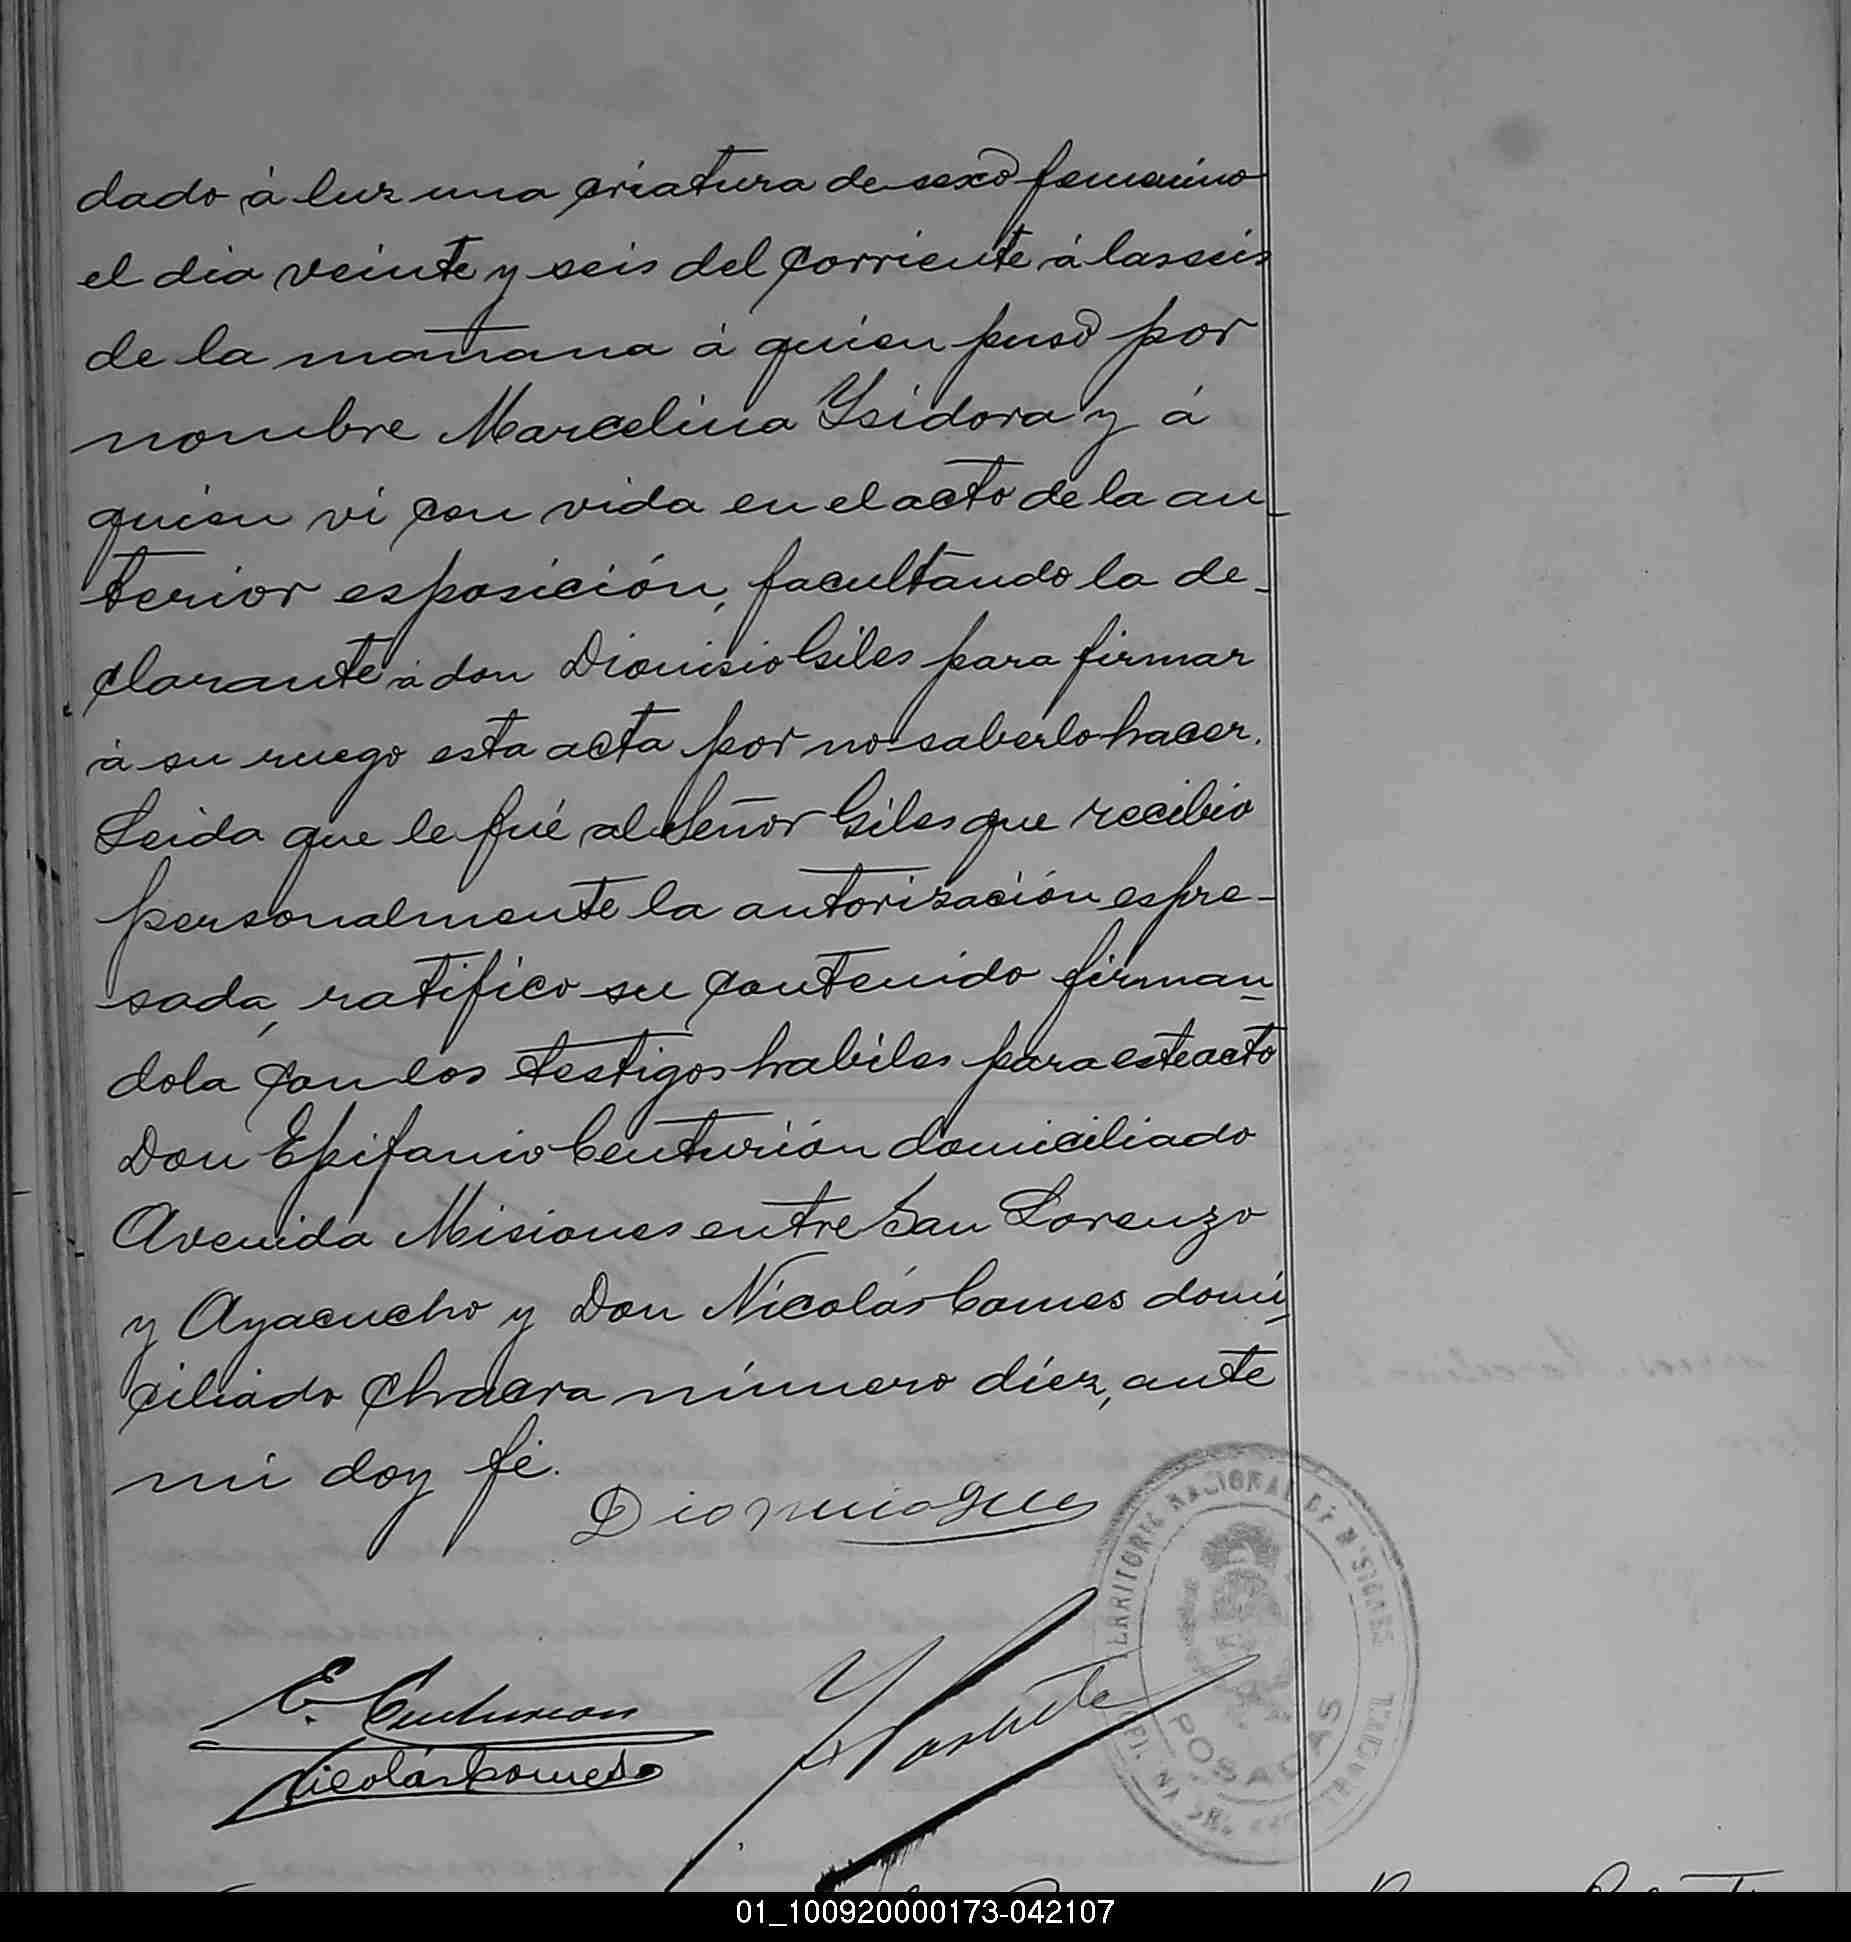 dado á luz una criatura de sexo femenino
el dia veinte y seis del corriente á las seis
de la mañana á quien puso por
nombre Marcelina Ysidora y á
quien vi con vida en el acto de la an-
terior esposición, facultando la de-
clarante á don Dionisio Giles para firmar
á su ruego esta acta por no saberlo hacer.
Leida que le fué al Señor Giles que recibio
personalmente la autorización espre-
sada, ratifico su contenido firman-
dola con los testigos habiles para este acto
Don Epifanio Centurión domiciliado
Avenida Misiones entre San Lorenzo
y Ayacucho y Don Nicolás Comes domi-
ciliado chacra número diez, ante
mi doy fé.
Dionisio Giles
TERRITORIO NACIONAL DE MISIONES
POSADAS
E. Centurion
Nicolás Comes
01_100920000173-042107